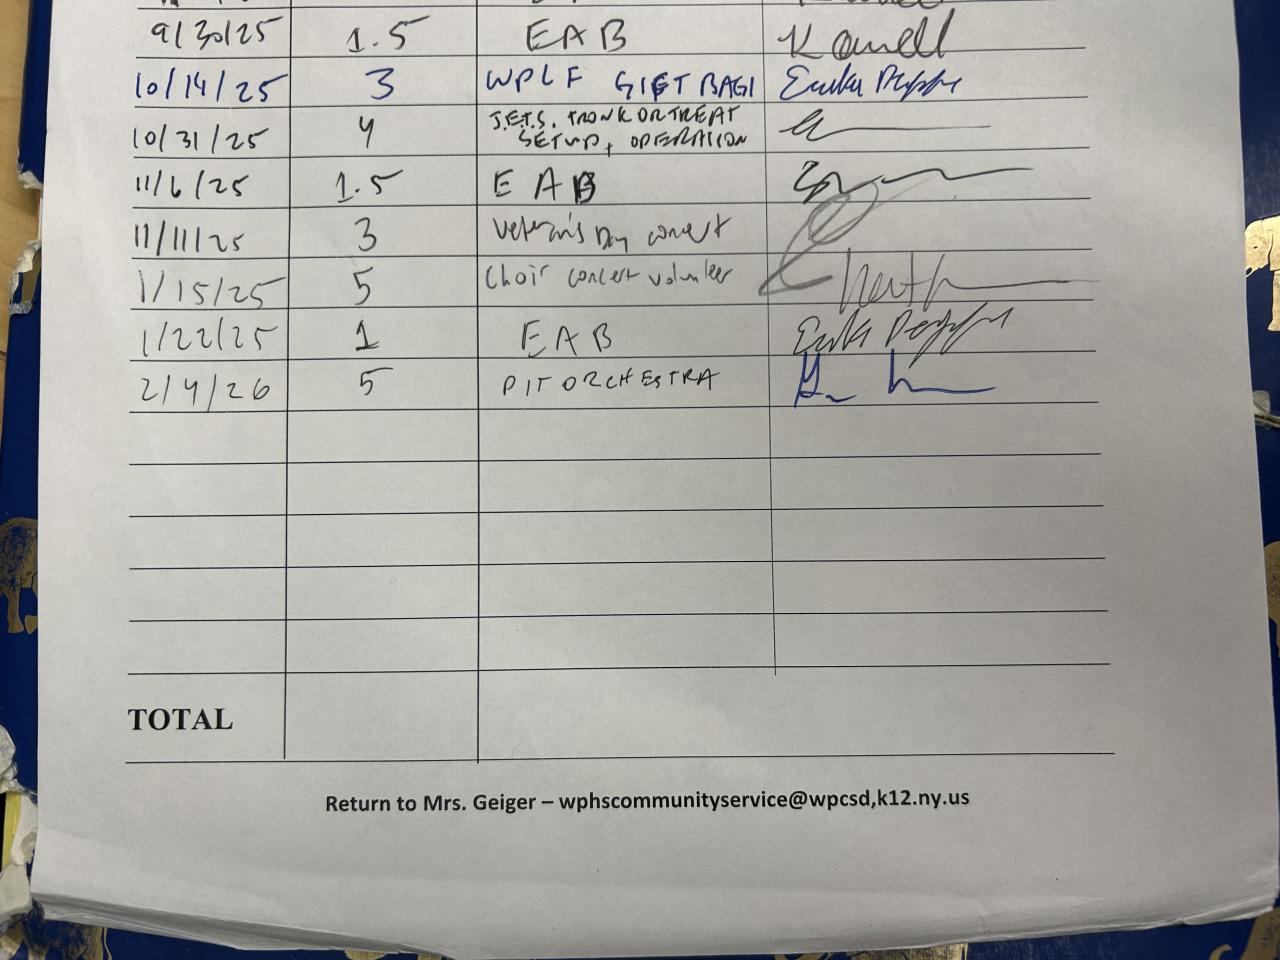 9/30/25 1.5 EAB K Cowell
10/14/25 3 WPLF GIFT BAGS
10/31/25 4 J.E.T.S. TRONK OR TREAT
SETUP, OPERATION
11/6/25 1.5 EAB
11/11/25 3 Veteran's Day concert
1/15/25 5 Choir concert volunteer
1/22/25 1 EAB
2/4/26 5 PIT ORCHESTRA
TOTAL
Return to Mrs. Geiger – wphscommunityservice@wpcsd,k12.ny.us